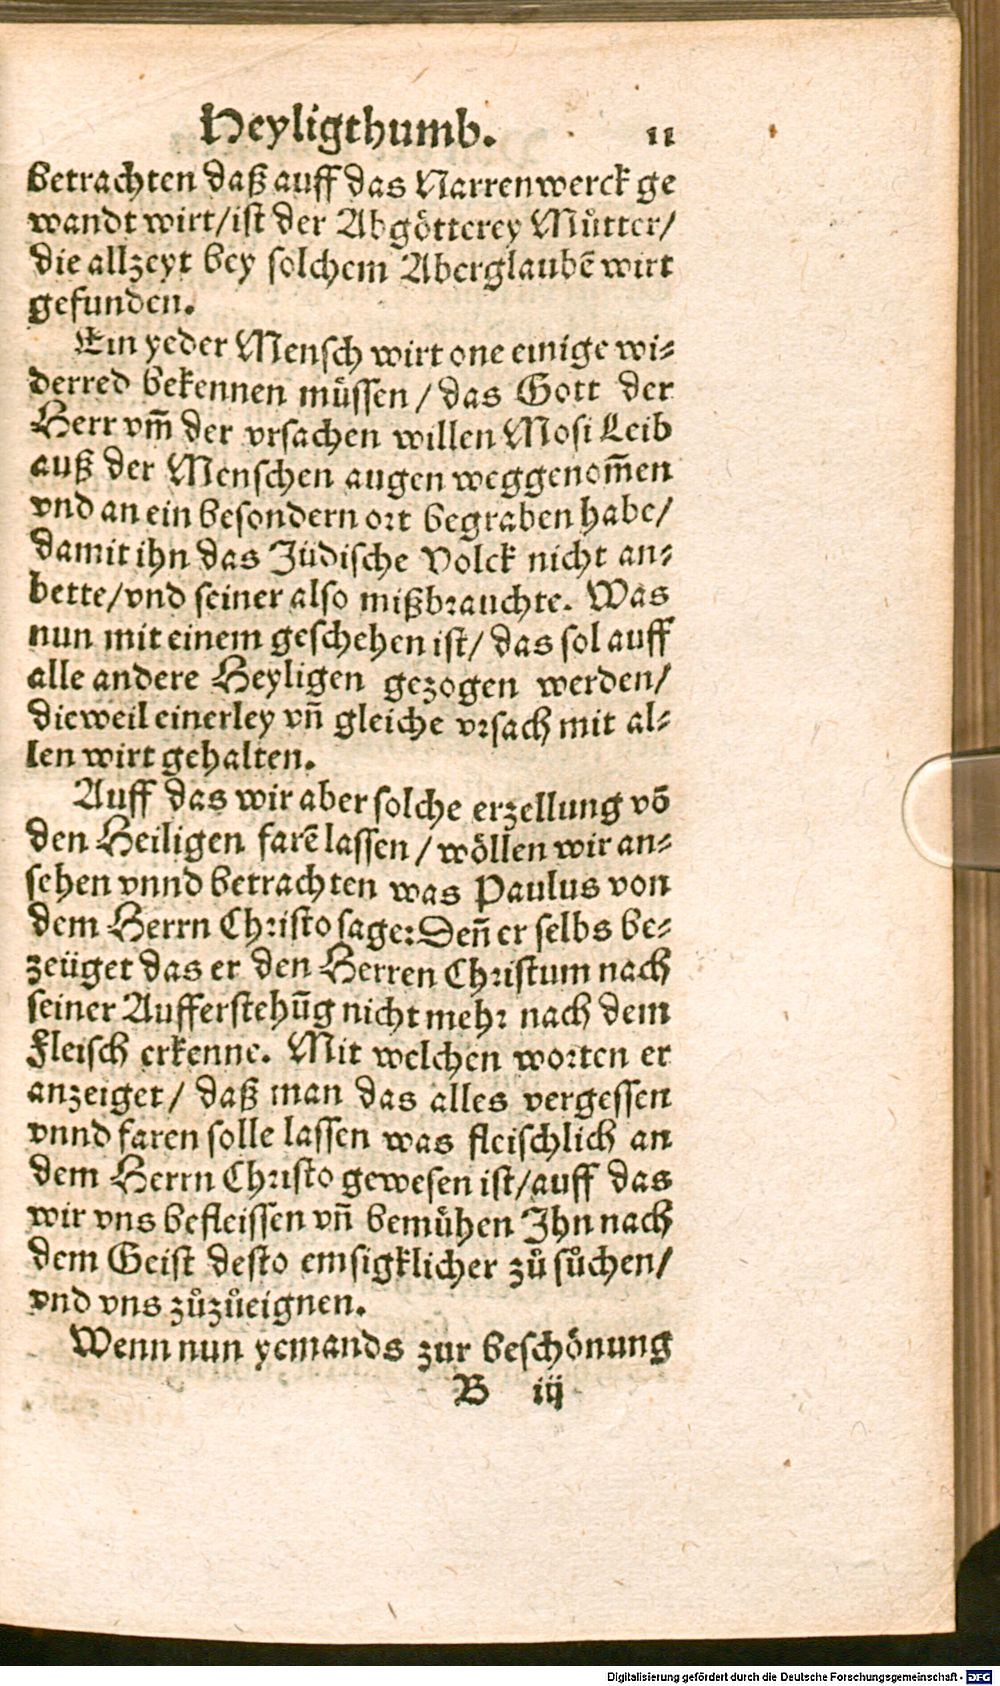 Heyligthumb. 11
betrachten daß auff das Narrenwerck ge
wandt wirt/ist der Abgötterey Můtter/
die allzeyt bey solchem Aberglaubē wirt
gefunden.
Ein yeder Mensch wirt one einige wi⸗
derred bekennen müssen / das Gott der
Herr vm̄ der vrsachen willen Mosi Leib
auß der Menschen augen weggenom̄en
vnd an ein besondern ort begraben habe/
damit ihn das Jüdische Volck nicht an⸗
bette/vnd seiner also mißbrauchte. Was
nun mit einem geschehen ist/ das sol auff
alle andere Heyligen gezogen werden/
dieweil einerley vn̄ gleiche vrsach mit al⸗
len wirt gehalten.
Auff das wir aber solche erzellung vō
den Heiligen farē lassen / wöllen wir an⸗
sehen vnnd betrachten was Paulus von
dem Herrn Christo sage: Den̄ er selbs be⸗
zeüget das er den Herren Christum nach
seiner Aufferstehūg nicht mehr nach dem
Fleisch erkenne. Mit welchen worten er
anzeiget / daß man das alles vergessen
vnnd faren solle lassen was fleischlich an
dem Herrn Christo gewesen ist/auff das
wir vns befleissen vn̄ bemühen Ihn nach
dem Geist desto emsigklicher zů sůchen/
vnd vns zůzůeignen.
Wenn nun yemands zur beschönung
B iij
Digitalisierung gefördert durch die Deutsche Forschungsgemeinschaft - DFG